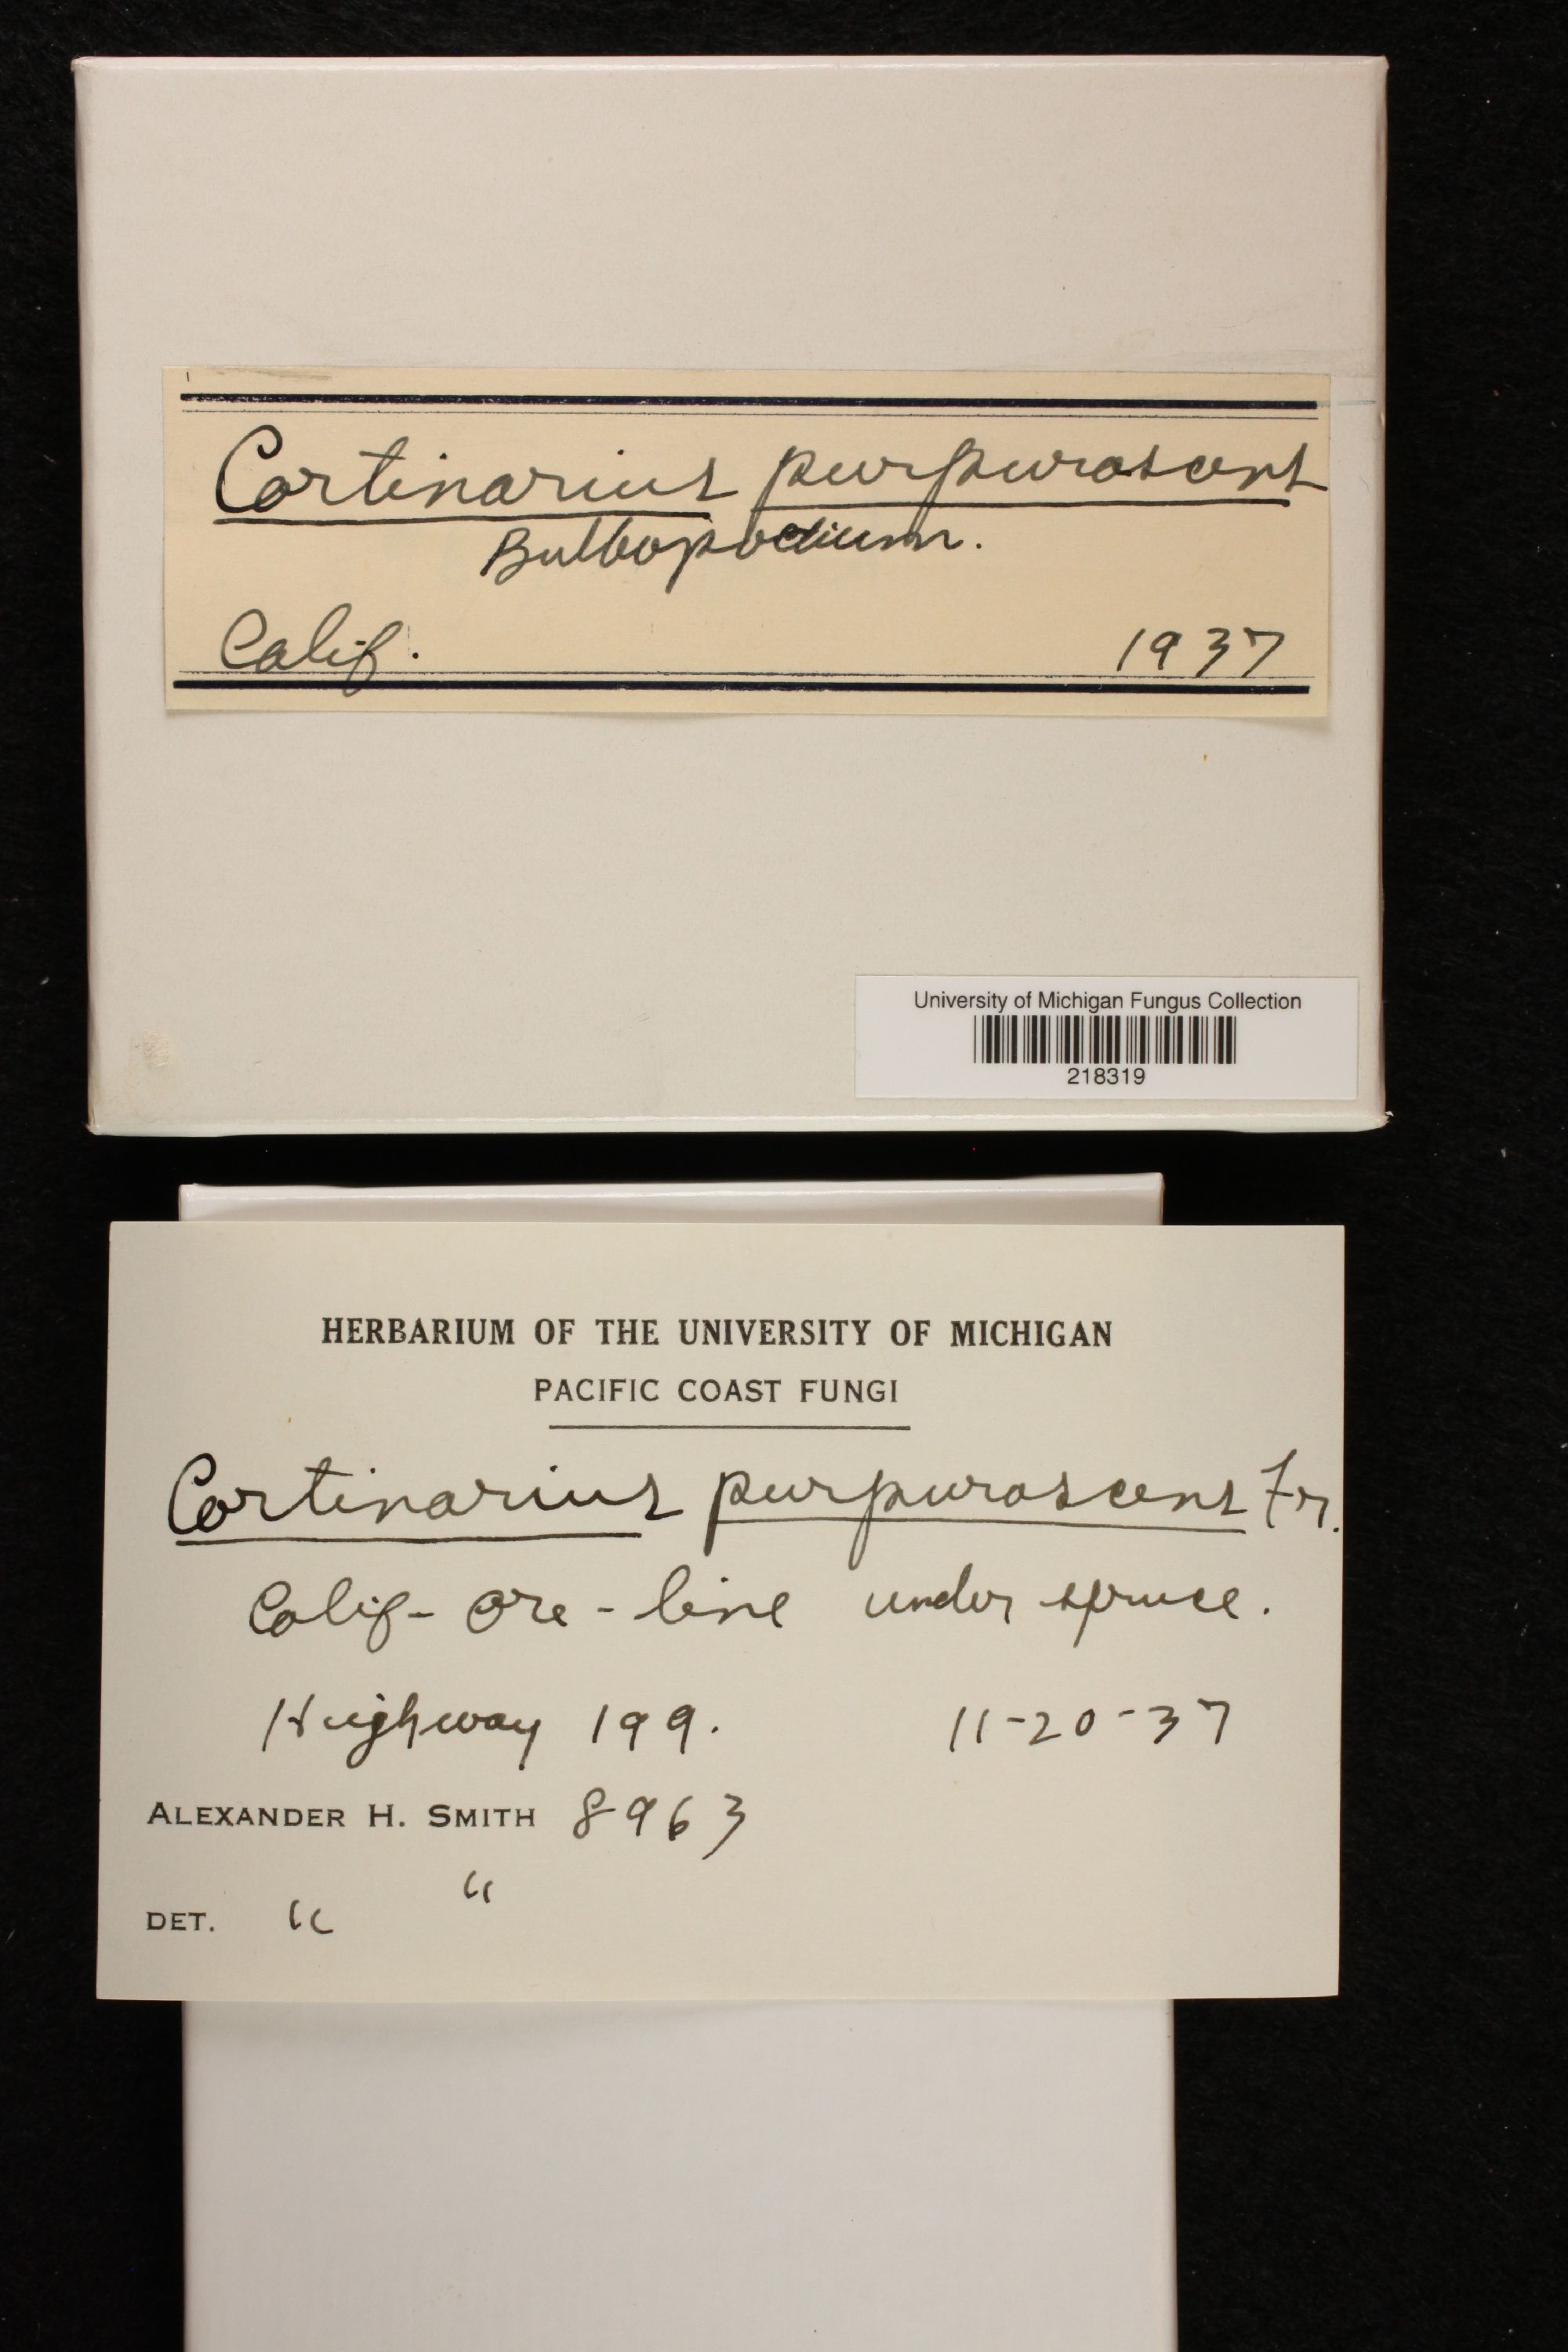 Cortinarius purpurascens
Bulbopodium.
Calif. 1937
University of Michigan Fungus Collection
218319
HERBARIUM OF THE UNIVERSITY OF MICHIGAN
PACIFIC COAST FUNGI
Cortinarius purpurascens Fr.
Calif- Ore - line under spruce.
Highway 199. 11-20-37
ALEXANDER H. SMITH 8963
DET. " "